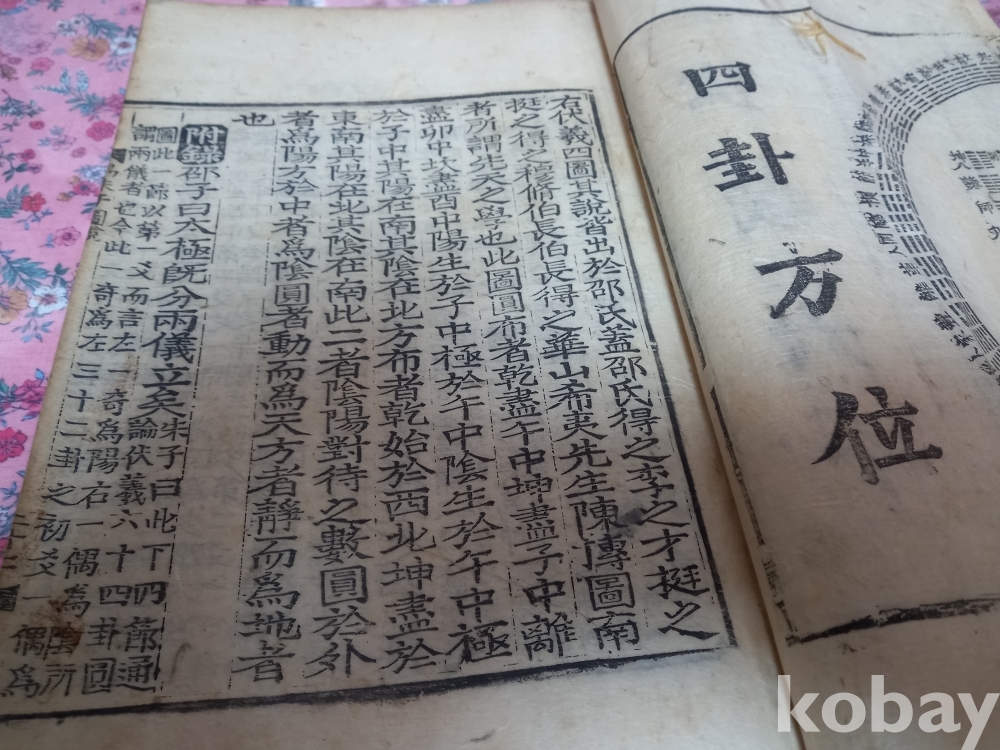 四卦方位
右伏羲四圖其說皆出於邵氏蓋邵氏得之李之才挺之
挺之得之穆脩伯長伯長得之華山希夷先生陳摶圖南
者所謂先天之學也此圖圓布者乾盡午中坤盡子中離
盡卯中坎盡酉中陽生於子中極於午中陰生於午中極
於子中其陽在南其陰在北方布者乾始於西北坤盡於
東南其陽在北其陰在南此二者陰陽對待之數圓於外
者爲陽方於中者爲陰圓者動而爲天方者靜而爲地者
也
附錄邵子曰太極旣分兩儀立矣朱子曰此下四節通
論伏羲六十四卦圓
圖此一節以第一爻而言左一奇爲陽右一偶爲陰所
謂兩儀者也今此一奇爲左三十二卦之初爻一偶爲
kobay